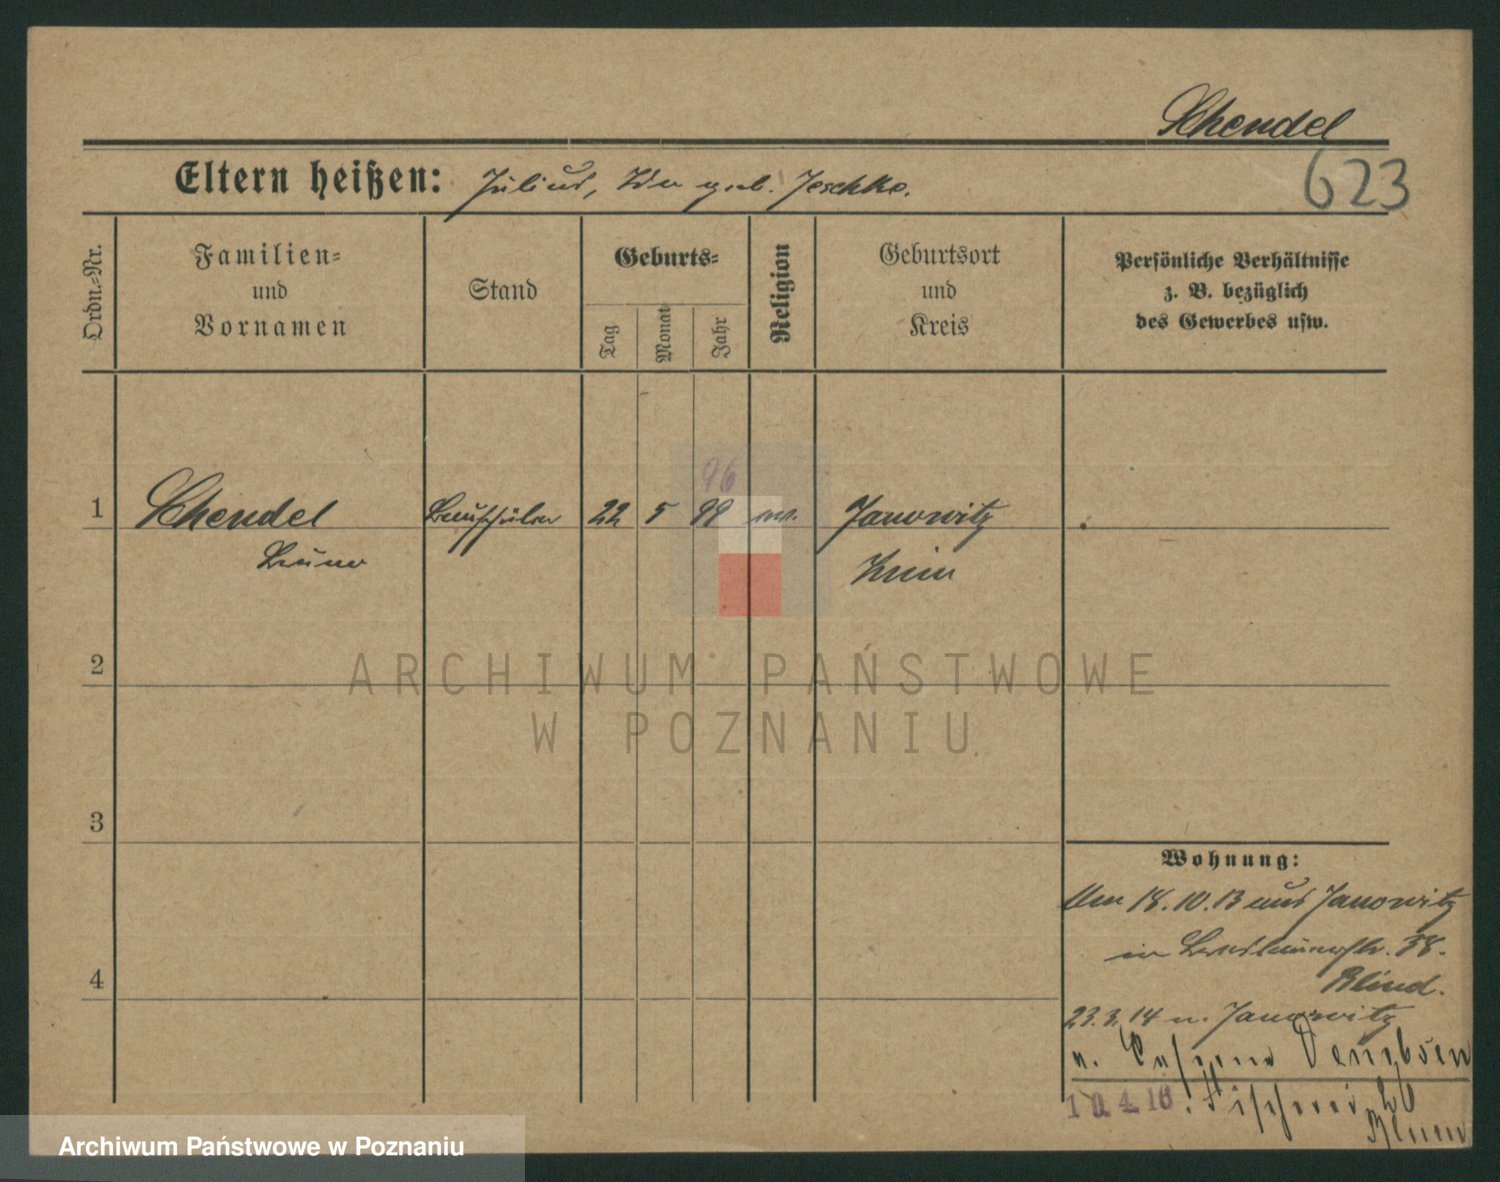 Schendel
623
Eltern heißen: Julius, Ida geb. Jeschke.
Ordn.-Nr.
Familien-
und
Vornamen
Stand
Geburts-
Tag
Monat
Jahr
Religion
Geburtsort
und
Kreis
Persönliche Verhältnisse
z. B. bezüglich
des Gewerbes usw.
96
1 Schendel Bauschüler 22 5 99 ev. Janowitz
Bruno Znin
2
ARCHIWUM PAŃSTWOWE
W POZNANIU
3
4
Wohnung:
Am 18.10.13 aus Janowitz
in 38.
Blind.
23.3.14 n. Janowitz
v.
10.4.16. Fischerei 26
Blum
Archiwum Państwowe w Poznaniu